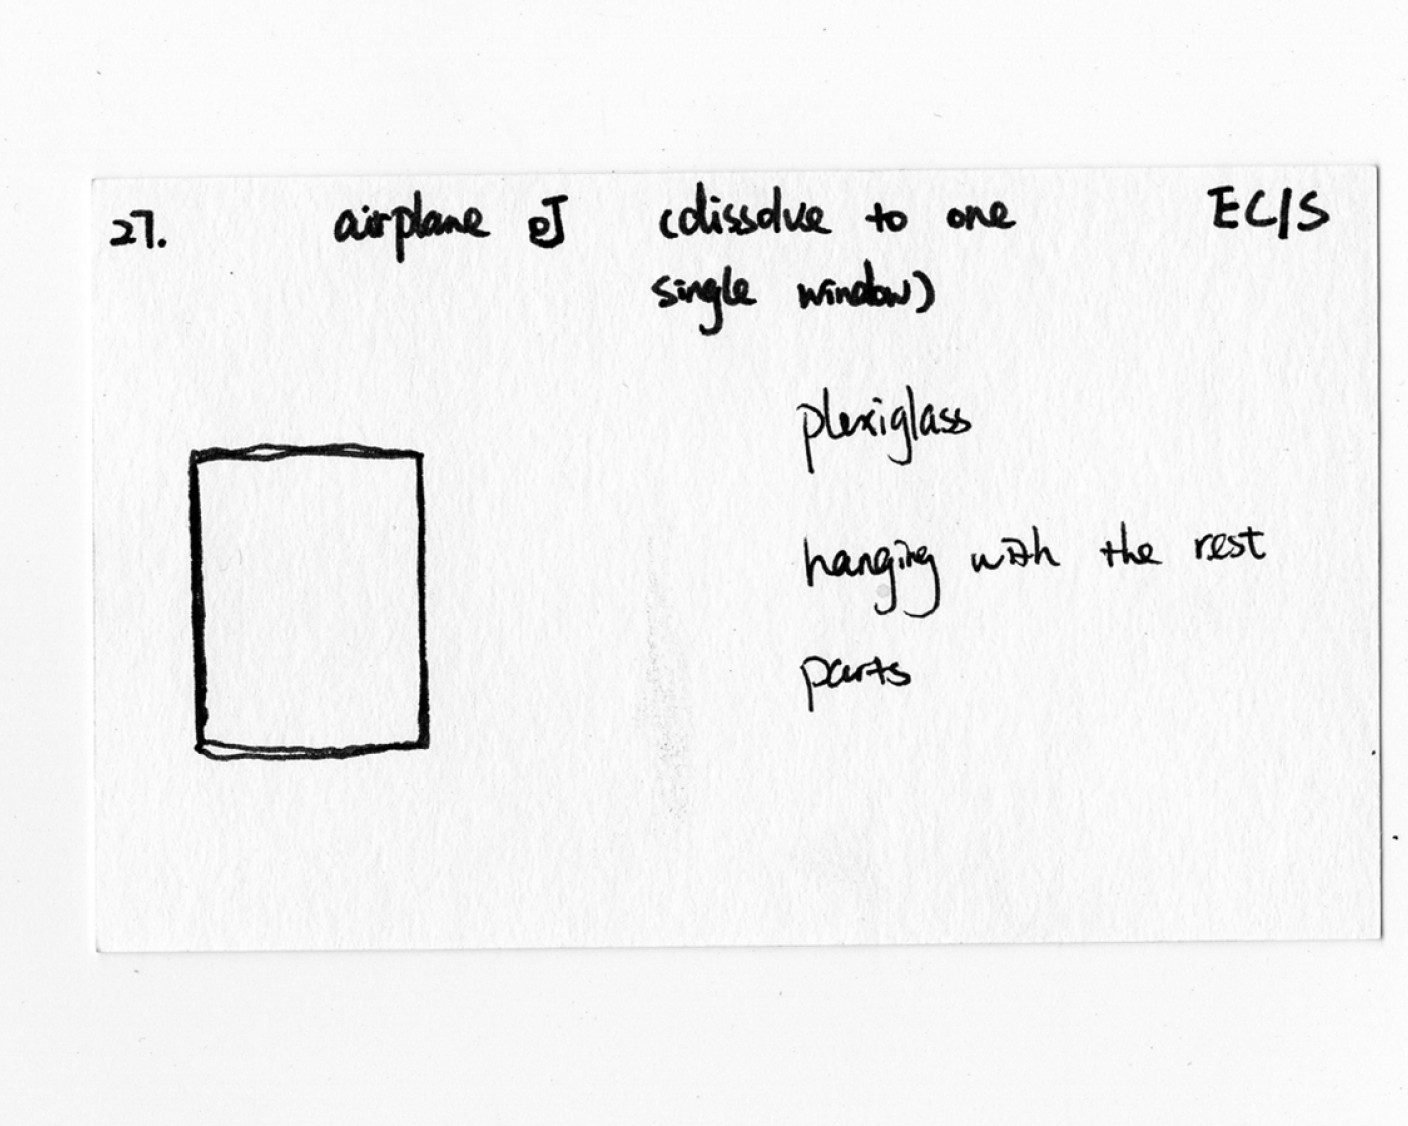 27. airplane eJ (dissolve to one EC/S
single window)
plexiglass
hanging with the rest
parts